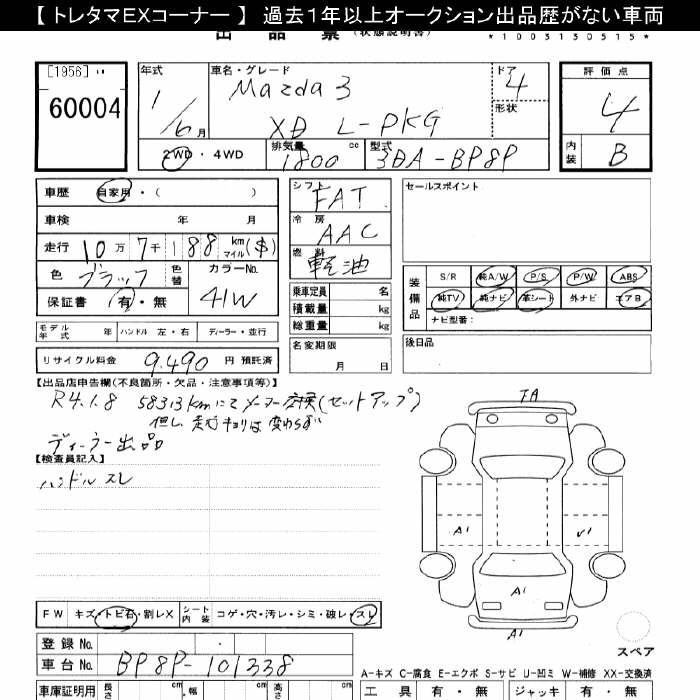 【 トレタマEXコーナー 】 過去１年以上オークション出品歴がない車両
出 品 票 (状態説明書)
*1003130515*
[1956]
60004
年式
1/6月
車名・グレード
Mazda 3
XD L-PKG
ドア
4
形状
評価点
4
内装
B
2WD・4WD
排気量
1800 cc
型式
3DA-BP8P
車歴 自家用・( )
車検 年 月
走行 10万 7千 188 km マイル ($)
色 ブラック 色替
カラーNo.
41W
保証書 有・無
モデル年式 年 ハンドル 左・右 ディーラー・並行
リサイクル料金 9,490 円 預託済
シフト
FAT
冷房
AAC
燃料
軽油
乗車定員 名
積載量 kg
総重量 kg
名変期限
月 日
セールスポイント
装備品
S/R 純A/W P/S P/W ABS
純TV 純ナビ 革シート 外ナビ エアB
ナビ型番:
後日品
【出品店申告欄(不良箇所・欠品・注意事項等)】
R4.1.8 58313kmにてメーター交換(セットアップ)
但し 走行キョリは変わらず
ディーラー出品
【検査員記入】
ハンドル スレ
FA
A1
U1
A1
A1
スペア
FW キズ・トビ石・割レX シート内装 コゲ・穴・汚レ・シミ・破レ・スレ
登録 No.
車台 No. BP8P-101338
A-キズ C-腐食 E-エクボ S-サビ U-凹ミ W-補修 XX-交換済
車庫証明用 長さ cm 幅 cm 高さ cm
工具 有・無 ジャッキ 有・無